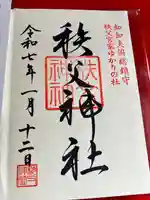 知知夫国総鎮守
秩父宮家ゆかりの社
秩父神社
令和七年一月十二日